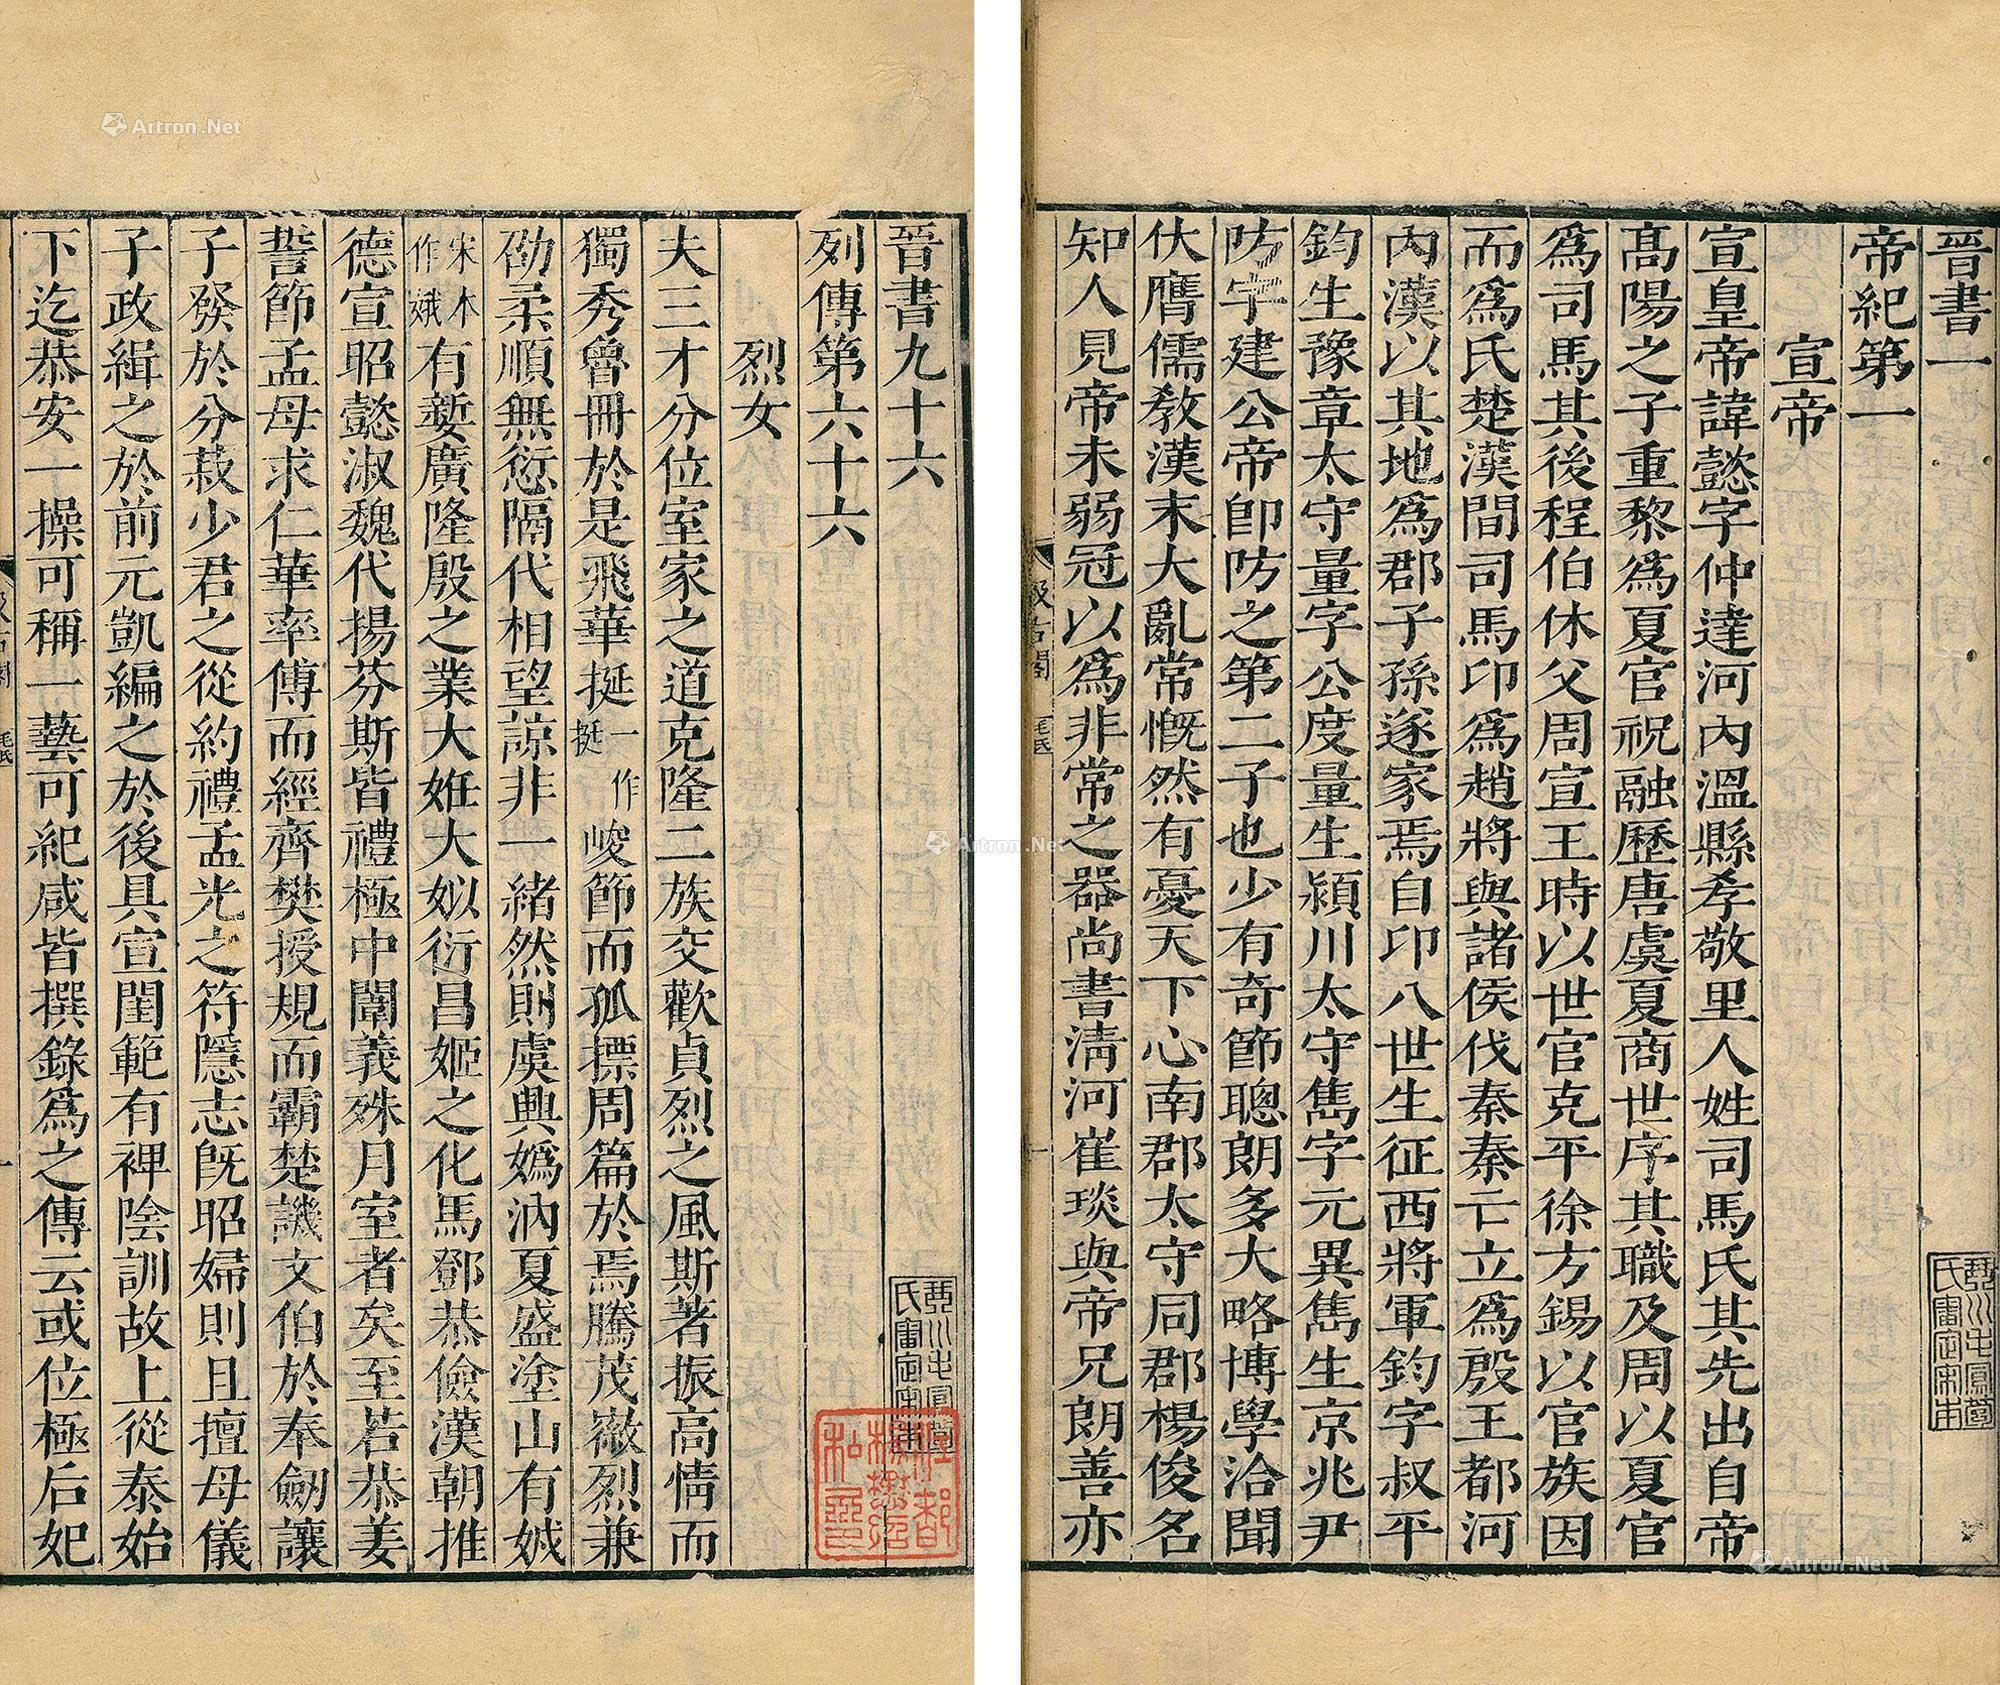 晉書一
帝紀第一
宣帝
宣皇帝諱懿字仲達河內溫縣孝敬里人姓司馬氏其先出自帝
髙陽之子重黎爲夏官祝融歷唐虞夏商世序其職及周以夏官
爲司馬其後程伯休父周宣王時以世官克平徐方錫以官族因
而爲氏楚漢間司馬卬爲趙將與諸侯伐秦秦亡立爲殷王都河
內漢以其地爲郡子孫遂家焉自卬八世生征西將軍鈞字叔平
鈞生豫章太守量字公度量生潁川太守雋字元異雋生京兆尹
防字建公帝即防之第二子也少有奇節聰朗多大略博學洽聞
伏膺儒敎漢末大亂常慨然有憂天下心南郡太守同郡楊俊名
知人見帝未弱冠以爲非常之器尚書淸河崔琰與帝兄朗善亦
汲古閣 毛氏
一
琅川屯圓
氏審定宋本
晉書九十六
列傳第六十六
烈女
夫三才分位室家之道克隆二族交歡貞烈之風斯著振高情而
獨秀魯冊於是飛華挺一作挺峻節而孤摽周篇於焉騰茂徽烈兼
劭柔順無愆隔代相望諒非一緒然則虞興嬀汭夏盛塗山有娀
宋本作娥有㜪廣隆殷之業大姙大姒衍昌姬之化馬鄧恭儉漢朝推
德宣昭懿淑魏代揚芬斯皆禮極中闈義殊月室者矣至若恭姜
誓節孟母求仁華率傅而經齊樊授規而霸楚譏文伯於奉劒讓
子發於分菽少君之從約禮孟光之符隱志旣昭婦則且擅母儀
子政緝之於前元凱編之於後具宣閨範有裨陰訓故上從泰始
下迄恭安一操可稱一藝可紀咸皆撰錄爲之傳云或位極后妃
汲古閣 毛氏
一
Artron.Net
Artron.Net
Artron.Net